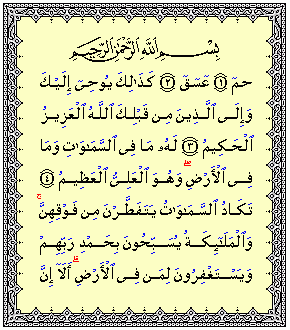 بِسْمِ ٱللَّهِ ٱلرَّحْمَٰنِ ٱلرَّحِيمِ
حمٓ ١ عٓسٓقٓ ٢ كَذَٰلِكَ يُوحِىٓ إِلَيْكَ
وَإِلَى ٱلَّذِينَ مِن قَبْلِكَ ٱللَّهُ ٱلْعَزِيزُ
ٱلْحَكِيمُ ٣ لَهُۥ مَا فِى ٱلسَّمَٰوَٰتِ وَمَا
فِى ٱلْأَرْضِ ۖ وَهُوَ ٱلْعَلِىُّ ٱلْعَظِيمُ ٤
تَكَادُ ٱلسَّمَٰوَٰتُ يَتَفَطَّرْنَ مِن فَوْقِهِنَّ ۚ
وَٱلْمَلَٰٓئِكَةُ يُسَبِّحُونَ بِحَمْدِ رَبِّهِمْ
وَيَسْتَغْفِرُونَ لِمَن فِى ٱلْأَرْضِ ۗ أَلَآ إِنَّ